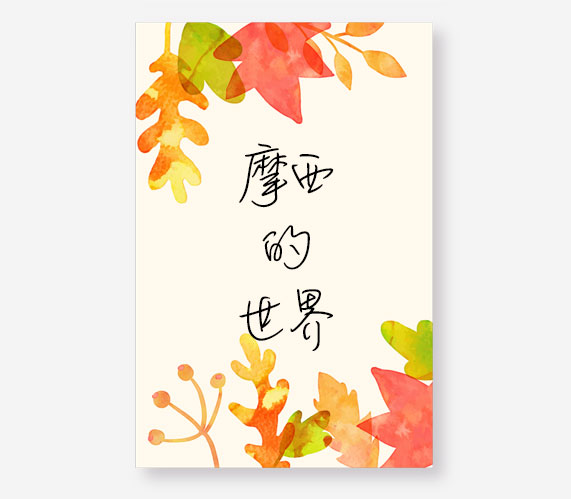 摩西
的
世界